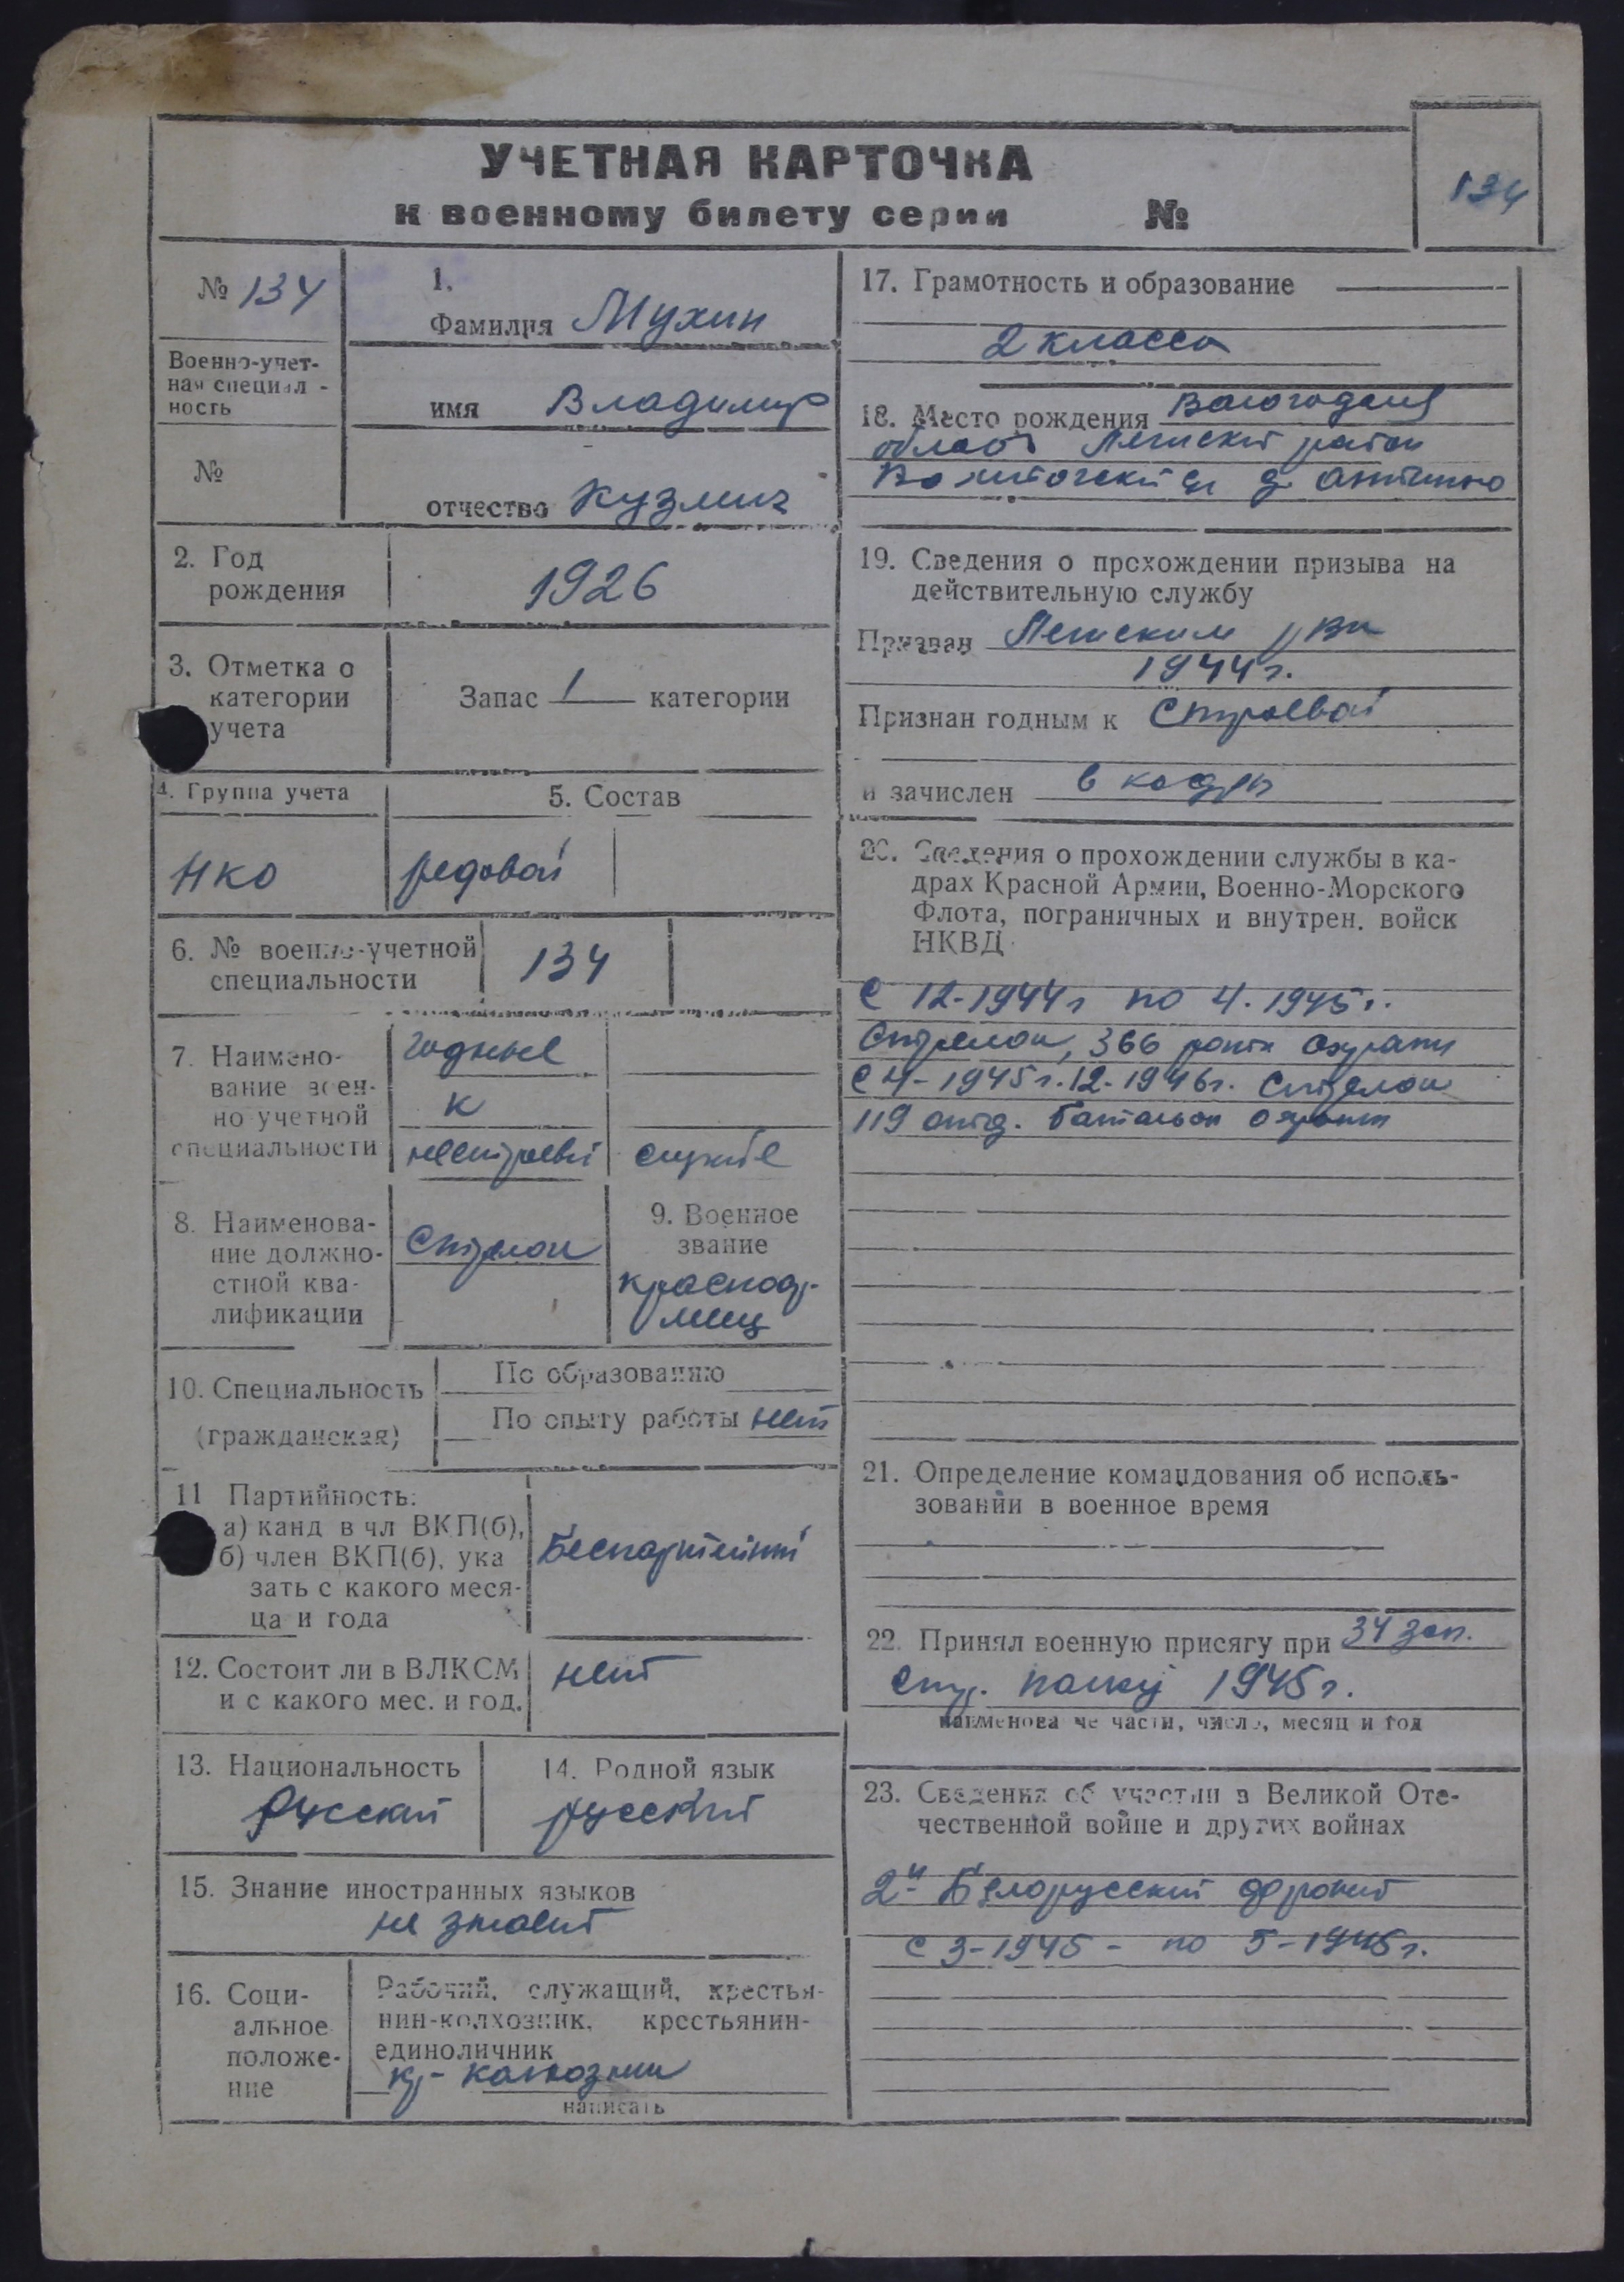 УЧЕТНАЯ КАРТОЧКА
к военному билету серии №
134
№ 134
Военно-учет-
ная специал-
ность
№
1.
Фамилия Мухин
имя Владимир
отчество Кузмич
2. Год
рождения
1926
3. Отметка о
категории
учета
Запас 1 категории
4. Группа учета
НКО
5. Состав
редовой
6. № военно-учетной
специальности
134
7. Наимено-
вание воен-
но учетной
специальности
годные
к
нестроевой службе
8. Наименова-
ние должно-
стной ква-
лификации
Стрелок
9. Военное
звание
красноар-
меец
10. Специальность
(гражданская)
По образованию
По опыту работы нет
11 Партийность:
а) канд в чл ВКП(б),
б) член ВКП(б), ука
зать с какого меся-
ца и года
Беспартийный
12. Состоит ли в ВЛКСМ
и с какого мес. и год.
нет
13. Национальность
Русский
14. Родной язык
русский
15. Знание иностранных языков
не знает
16. Соци-
альное
положе-
ние
Рабочий, служащий, крестья-
нин-колхозник, крестьянин-
единоличник
кр-колхозник
написать
17. Грамотность и образование
2 класса
18. Место рождения Вологодская
область район
д.
19. Сведения о прохождении призыва на
действительную службу
Призван РВК
1944 г.
Признан годным к Строевой
и зачислен в кадры
20. Сведения о прохождении службы в ка-
драх Красной Армии, Военно-Морского
Флота, пограничных и внутрен. войск
НКВД
С 12-1944 г по 4. 1945 г.
Стрелок, 366 рота охраны
С 4-1945 г. 12-1946 г. Стрелок
119 отд. батальон охраны
21. Определение командования об исполь-
зовании в военное время
22. Принял военную присягу при 34 зап.
стр. полку 1945 г.
наименование части, число, месяц и год
23. Сведения об участии в Великой Оте-
чественной войне и других войнах
2й Белорусский фронт
с 3-1945 - по 5-1945 г.